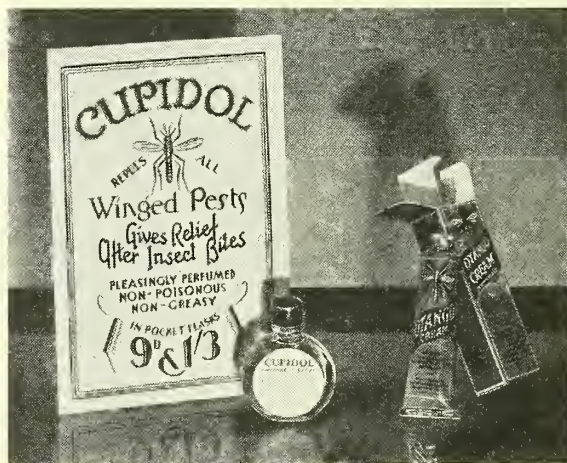 CUPIDOL
REPELS ALL
Winged Pests
Gives Relief
After Insect Bites
PLEASINGLY PERFUMED
NON-POISONOUS
NON-GREASY
IN POCKET FLASKS
9D & 1/3
CUPIDOL
CREAM
CREAM